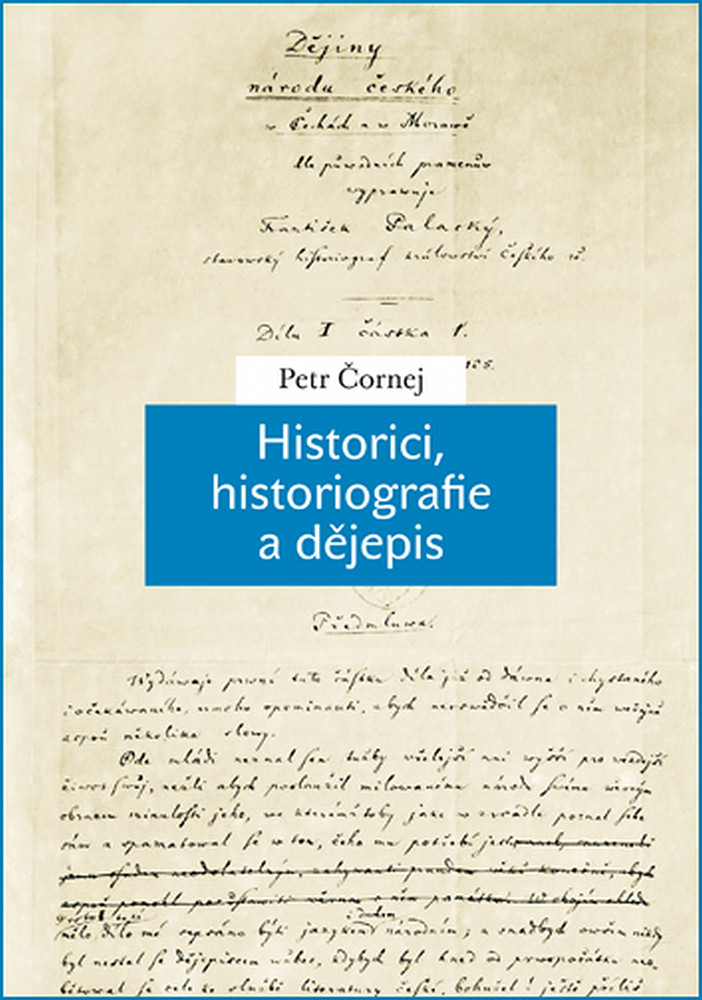 Dějiny
národu českého
w Čechách a w Morawě
dle původních pramenůw
wyprawuje
František Palacký,
stawowský historiograf králowstwí Českého
Dílu I částka 1.
Petr Čornej
Historici,
historiografie
a dějepis
Předmluwa.
Wydáwaje prwní tuto částku díla již od dáwna i chystaného
i očekáwaného, mnoho opominauti, abych neoswědčil se o něm
aspoň několika slowy.
Ode mládí neznal sem tužby wřelejší ani wyšší pro
žiwot swůj, nežli abych poslaužil milowanému národu swému wěrným
obrazem minulosti jeho, we kterémžtoby jako w zrcadle poznal sebe
sám a zpamatowal se w tom, čeho mu potřebí jest
mělo dílo mé sepsáno býti jazykem národním; a snadbych owšem nikdy
byl nestal se dějepiscem wůbec, kdybych byl hned od prwopočátku
se cele ke službě literatury české, bohužel! ještě příliš